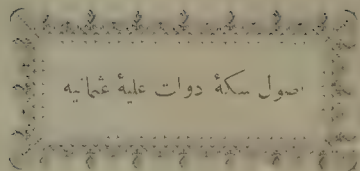 اصول سكهٔ دولت عليهٔ عثمانيه